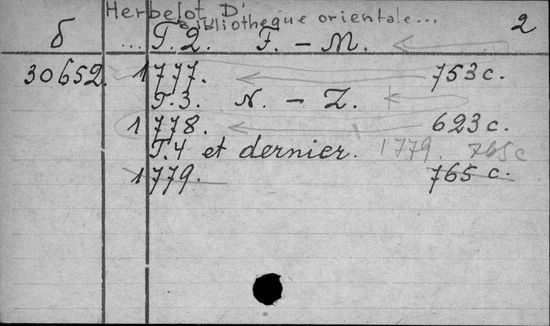 Herbelot D'
Bibliotheque orientale... 2
б ... T.2. F. - M.
30652. 1777. 753 c.
T.3. N. - Z.
1778. 623 c.
T.4 et dernier. 1779. 765 c
1779. 765 c.